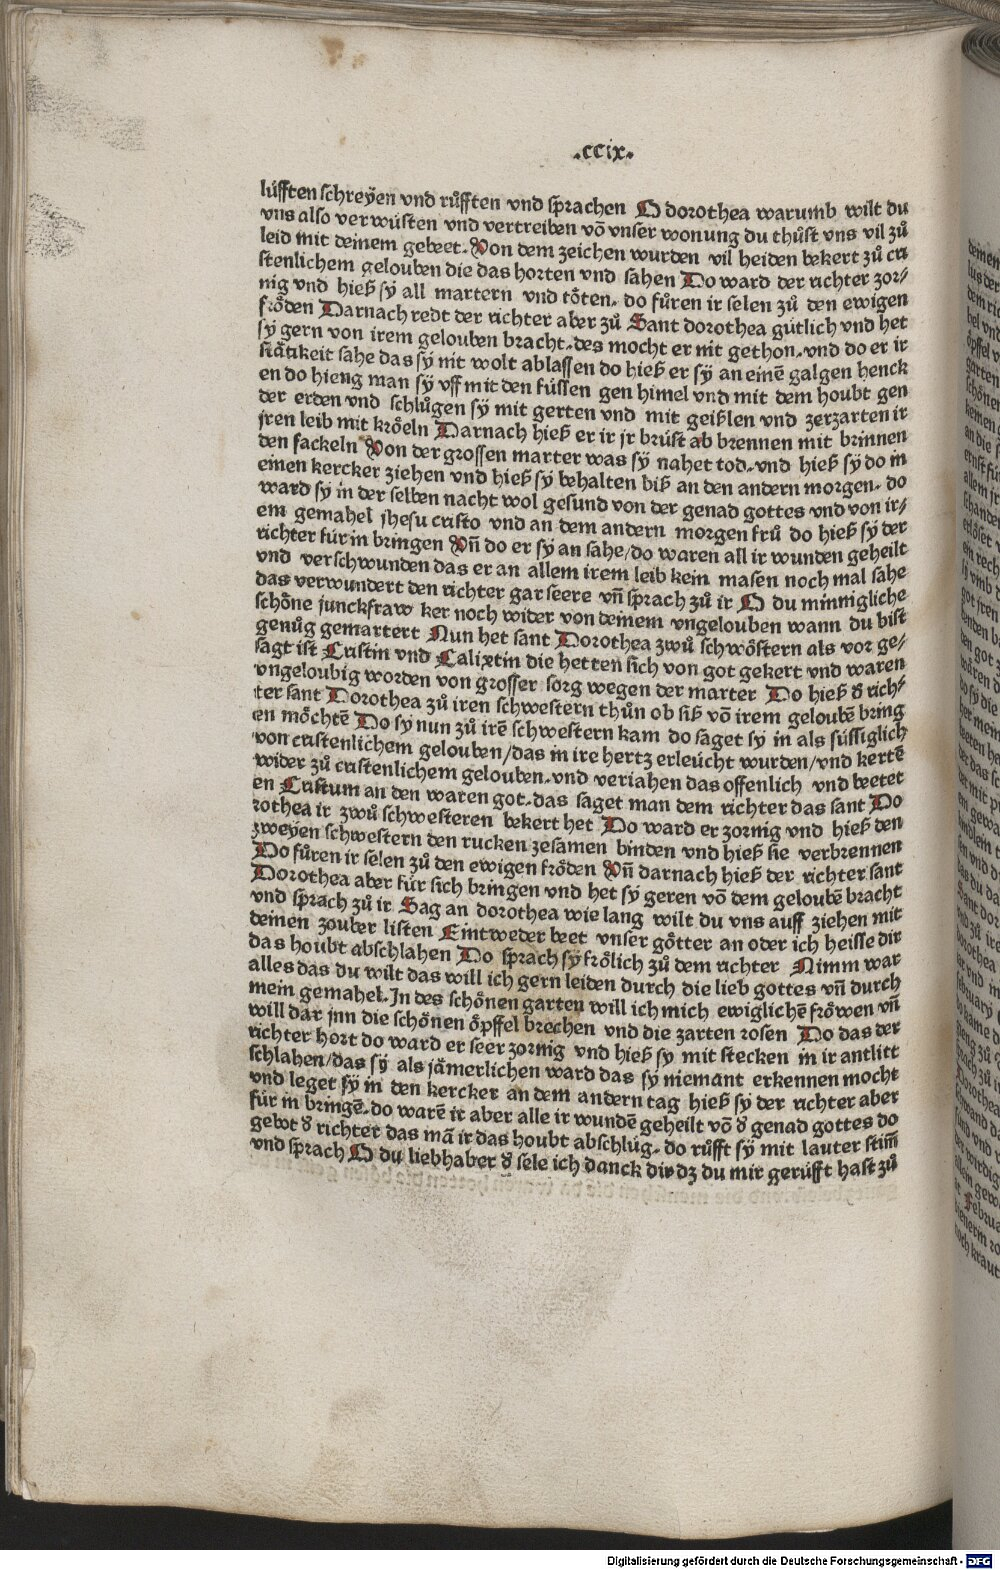 .ccix.
lüfften schreÿen vnd růfften vnd sprachen O dorothea warumb wilt du
vns also verwüsten vnd vertreiben võ vnser wonung du thůst vns vil zů
leid mit deinem gebeet. Von dem zeichen wurden vil heiden bekert zů cri
stenlichem gelouben die das horten vnd sahen Do ward der richter zor/
nig vnd hieß sÿ all martern vnd töten. do fůren ir selen zů den ewigen
fröden Darnach redt der richter aber zů Sant dorothea gütlich vnd het
sÿ gern von irem gelouben bracht. des mocht er nit gethon. vnd do er ir
stätikeit sahe das sÿ nit wolt ablassen do hieß er sÿ an einẽ galgen henck
en do hieng man sÿ vff mit den füssen gen himel vnd mit dem houbt gen
der erden vnd schlůgen sÿ mit gerten vnd mit geißlen vnd zerzarten ir
jren leib mit kröeln Darnach hieß er ir jr brüst ab brennen mit brinnen
den fackeln Von der grossen marter was sÿ nahet tod. vnd hieß sÿ do in
einen kercker ziehen vnd hieß sÿ behalten biß an den andern morgen. do
ward sÿ in der selben nacht wol gesund von der genad gottes vnd von ir/
em gemahel jhesu cristo vnd an dem andern morgen frů do hieß sÿ der
richter für in bringen Vñ do er sÿ an sahe/do waren all ir wunden geheilt
vnd verschwunden das er an allem irem leib kein masen noch mal sahe
das verwundert den richter gar seere vñ sprach zů ir O du minnigliche
schöne junckfraw ker noch wider von deinem vngelouben wann du bist
genůg gemartert Nun het sant Dorothea zwů schwöstern als vor ge/
sagt ist Cristin vnd Calixtin die hetten sich von got gekert vnd waren
vngeloubig worden von grosser sorg wegen der marter Do hieß d̕ rich/
ter sant Dorothea zů iren schwestern thůn ob siß võ irem geloubẽ bring
en möchtẽ Do sy nun zů irẽ schwestern kam do saget sÿ in als süssiglich
von cristenlichem gelouben/das in ire hertz erleücht wurden/vnd kertẽ
wider zů cristenlichem gelouben. vnd veriahen das offenlich vnd beetet
en Cristum an den waren got. das saget man dem richter das sant Do
rothea ir zwů schwesteren bekert het Do ward er zornig vnd hieß den
zweyen schwestern den rucken zesamen binden vnd hieß sie verbrennen
Do fůren ir selen zů den ewigen fröden Vñ darnach hieß der richter sant
Dorothea aber für sich bringen vnd het sÿ geren võ dem geloubẽ bracht
vnd sprach zů ir Sag an dorothea wie lang wilt du vns auff ziehen mit
deinen zouber listen Eintweder beet vnser götter an oder ich heisse dir
das houbt abschlahen Do sprach sÿ frölich zů dem richter Nimm war
alles das du wilt das will ich gern leiden durch die lieb gottes vñ durch
mein gemahel. In des schönen garten will ich mich ewiglichẽ fröwen vñ
will dar jnn die schönen öpffel brechen vnd die zarten rosen Do das der
richter hort do ward er seer zornig vnd hieß sy mit stecken in ir antlitt
schlahen/das sÿ als jämerlichen ward das sy niemant erkennen mocht
vnd leget sÿ in den kercker an dem andern tag hieß sy der richter aber
für in bringẽ. do warẽ ir aber alle ir wundẽ geheilt võ d̕ genad gottes do
gebot d̕ richter das mã ir das houbt abschlüg. do růfft sÿ mit lauter stim̃
vnd sprach O du liebhaber d̕ sele ich danck dir dz du mir gerüfft hast zů
Digitalisierung gefördert durch die Deutsche Forschungsgemeinschaft - DFG